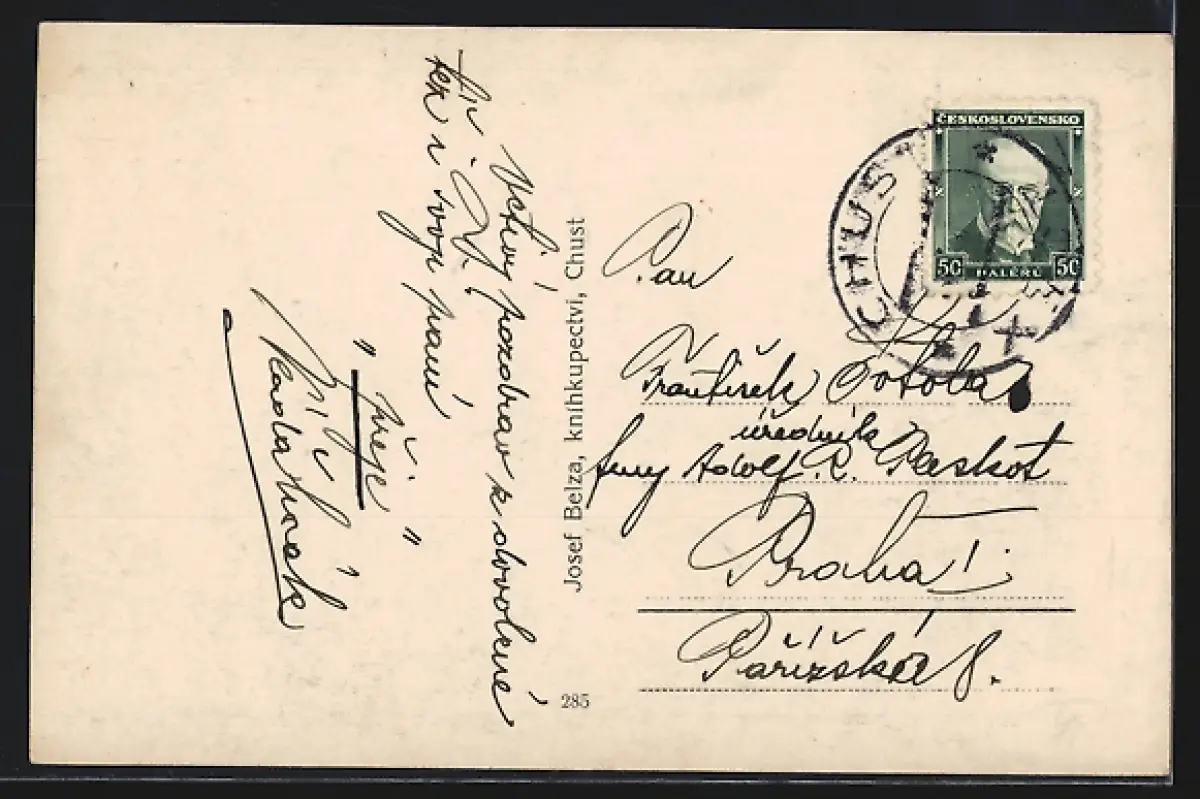 Uctivý pozdrav z dovolené
i svojí paní
„ přeje "
Josef Belza, knihkupectví, Chust
285
ČESKOSLOVENSKO
50 HALÉŘŮ 50
CHUST
Pan
František
úředník
firmy Adolf R. Paskot
Praha I.
Pařížská 8.